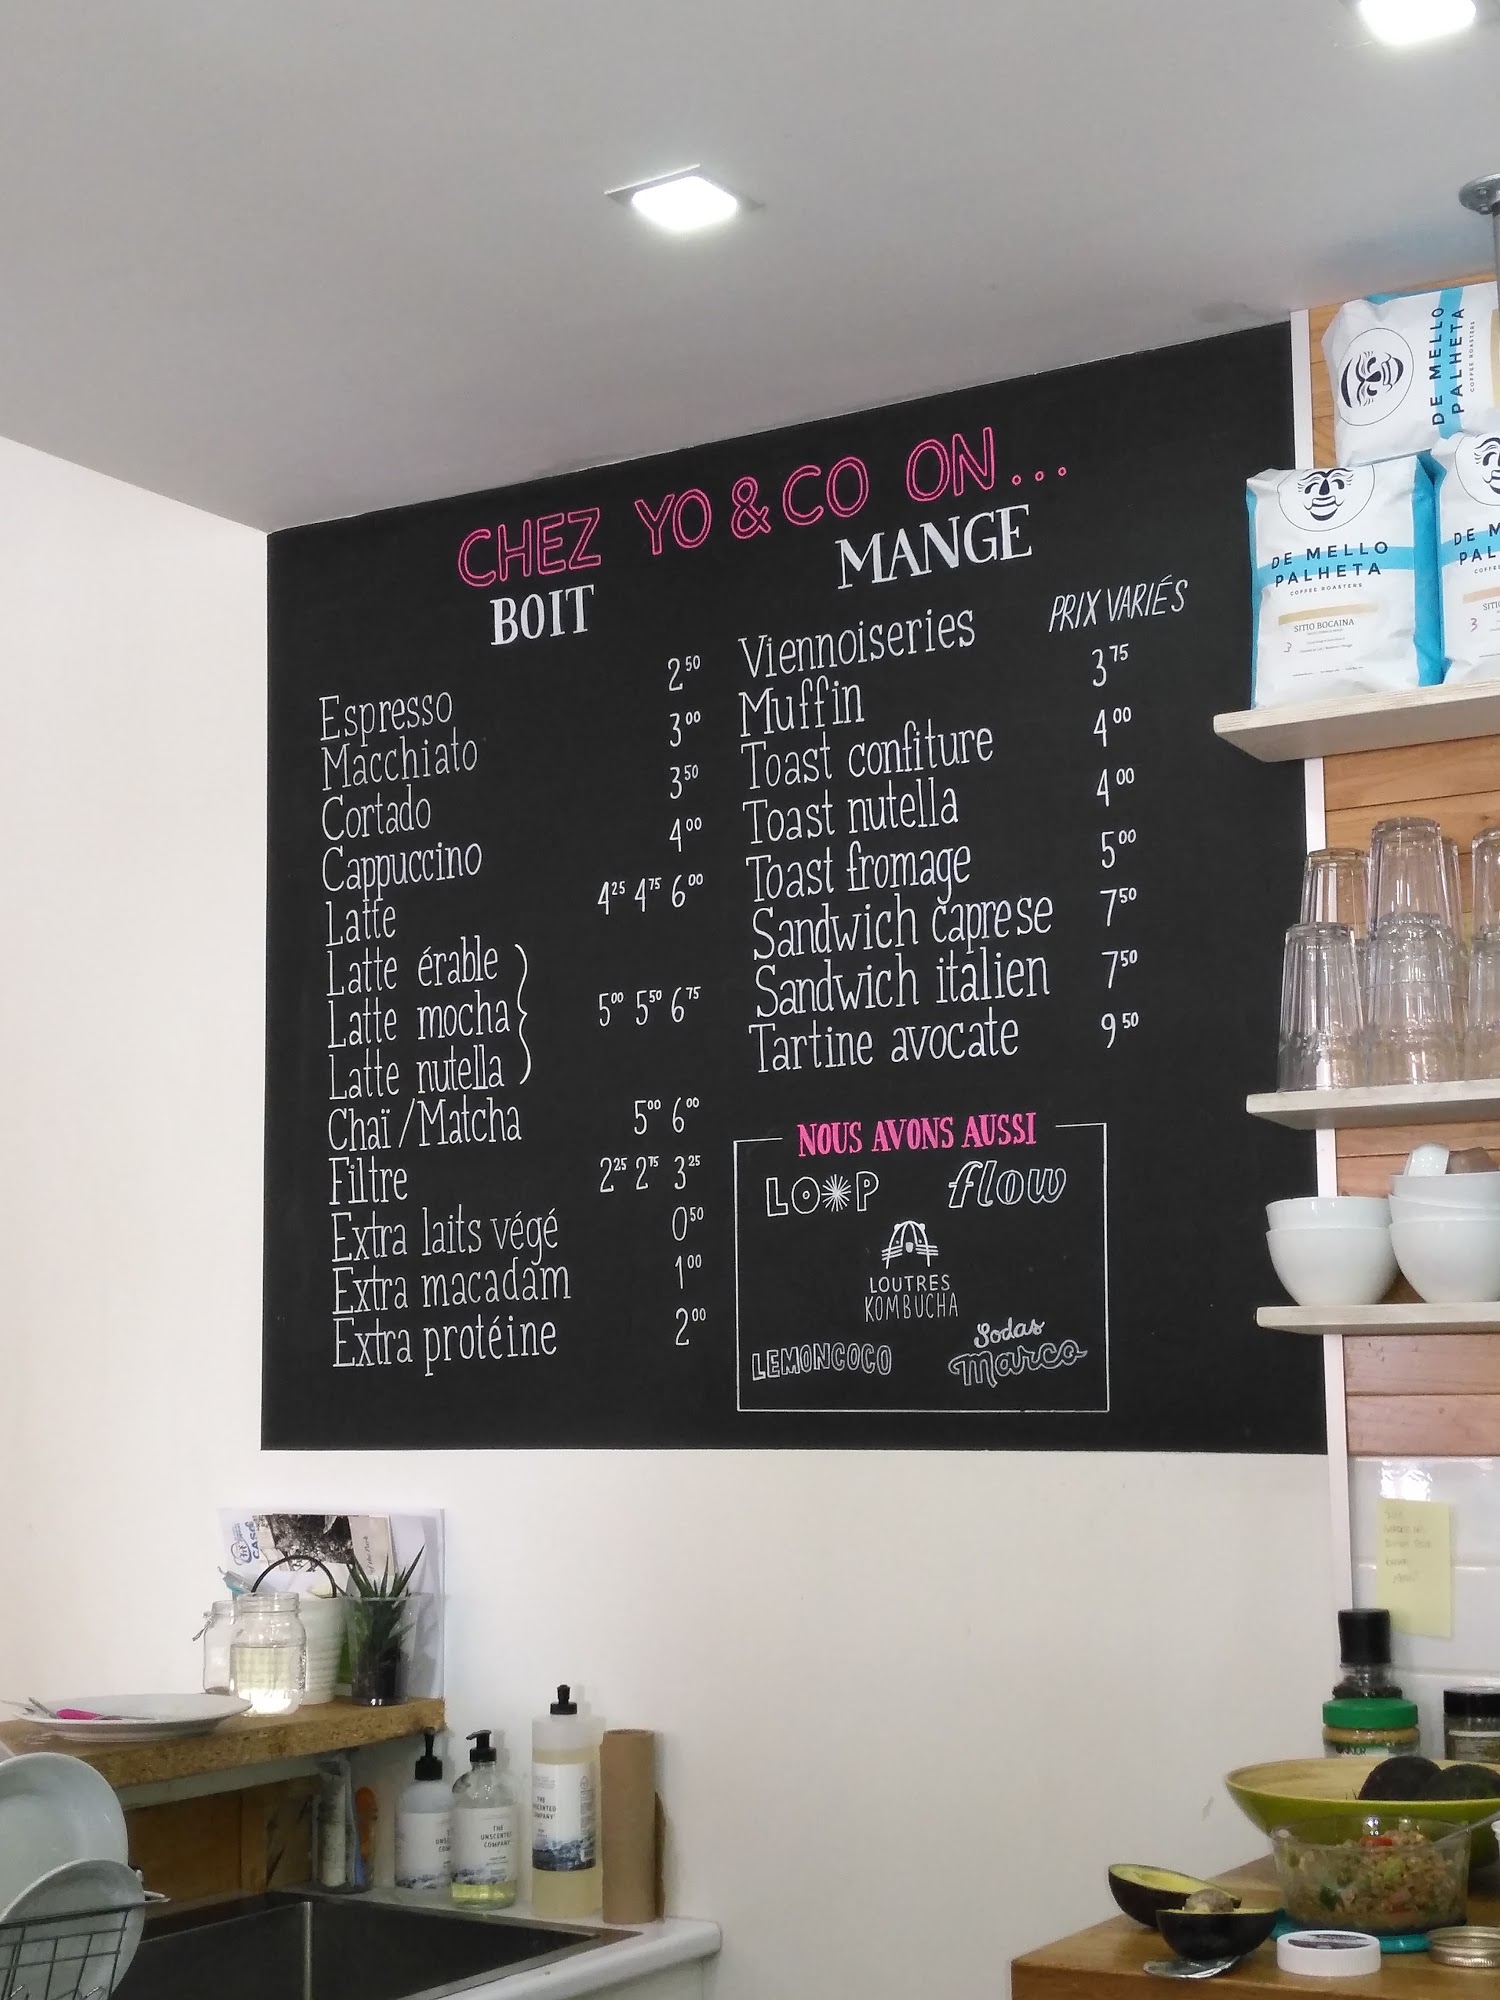 CHEZ YO & CO ON...
BOIT
Espresso 2.50
Macchiato 3.00
Cortado 3.50
Cappuccino 4.00
Latte 4.25 4.75 6.00
Latte érable
Latte mocha } 5.00 5.50 6.75
Latte nutella
Chaï / Matcha 5.00 6.00
Filtre 2.25 2.75 3.25
Extra laits végé 0.50
Extra macadam 1.00
Extra protéine 2.00
MANGE
Viennoiseries PRIX VARIÉS
Muffin 3.75
Toast confiture 4.00
Toast nutella 4.00
Toast fromage 5.00
Sandwich caprese 7.50
Sandwich italien 7.50
Tartine avocate 9.50
NOUS AVONS AUSSI
LOOP flow
LOUTRES
KOMBUCHA
LEMONCOCO
Sodas
Marco
DE MELLO
PALHETA
COFFEE ROASTERS
DE MELLO
PALHETA
COFFEE ROASTERS
SITIO BOCAINA
3
THE
UNSCENTED
COMPANY
THE
UNSCENTED
COMPANY